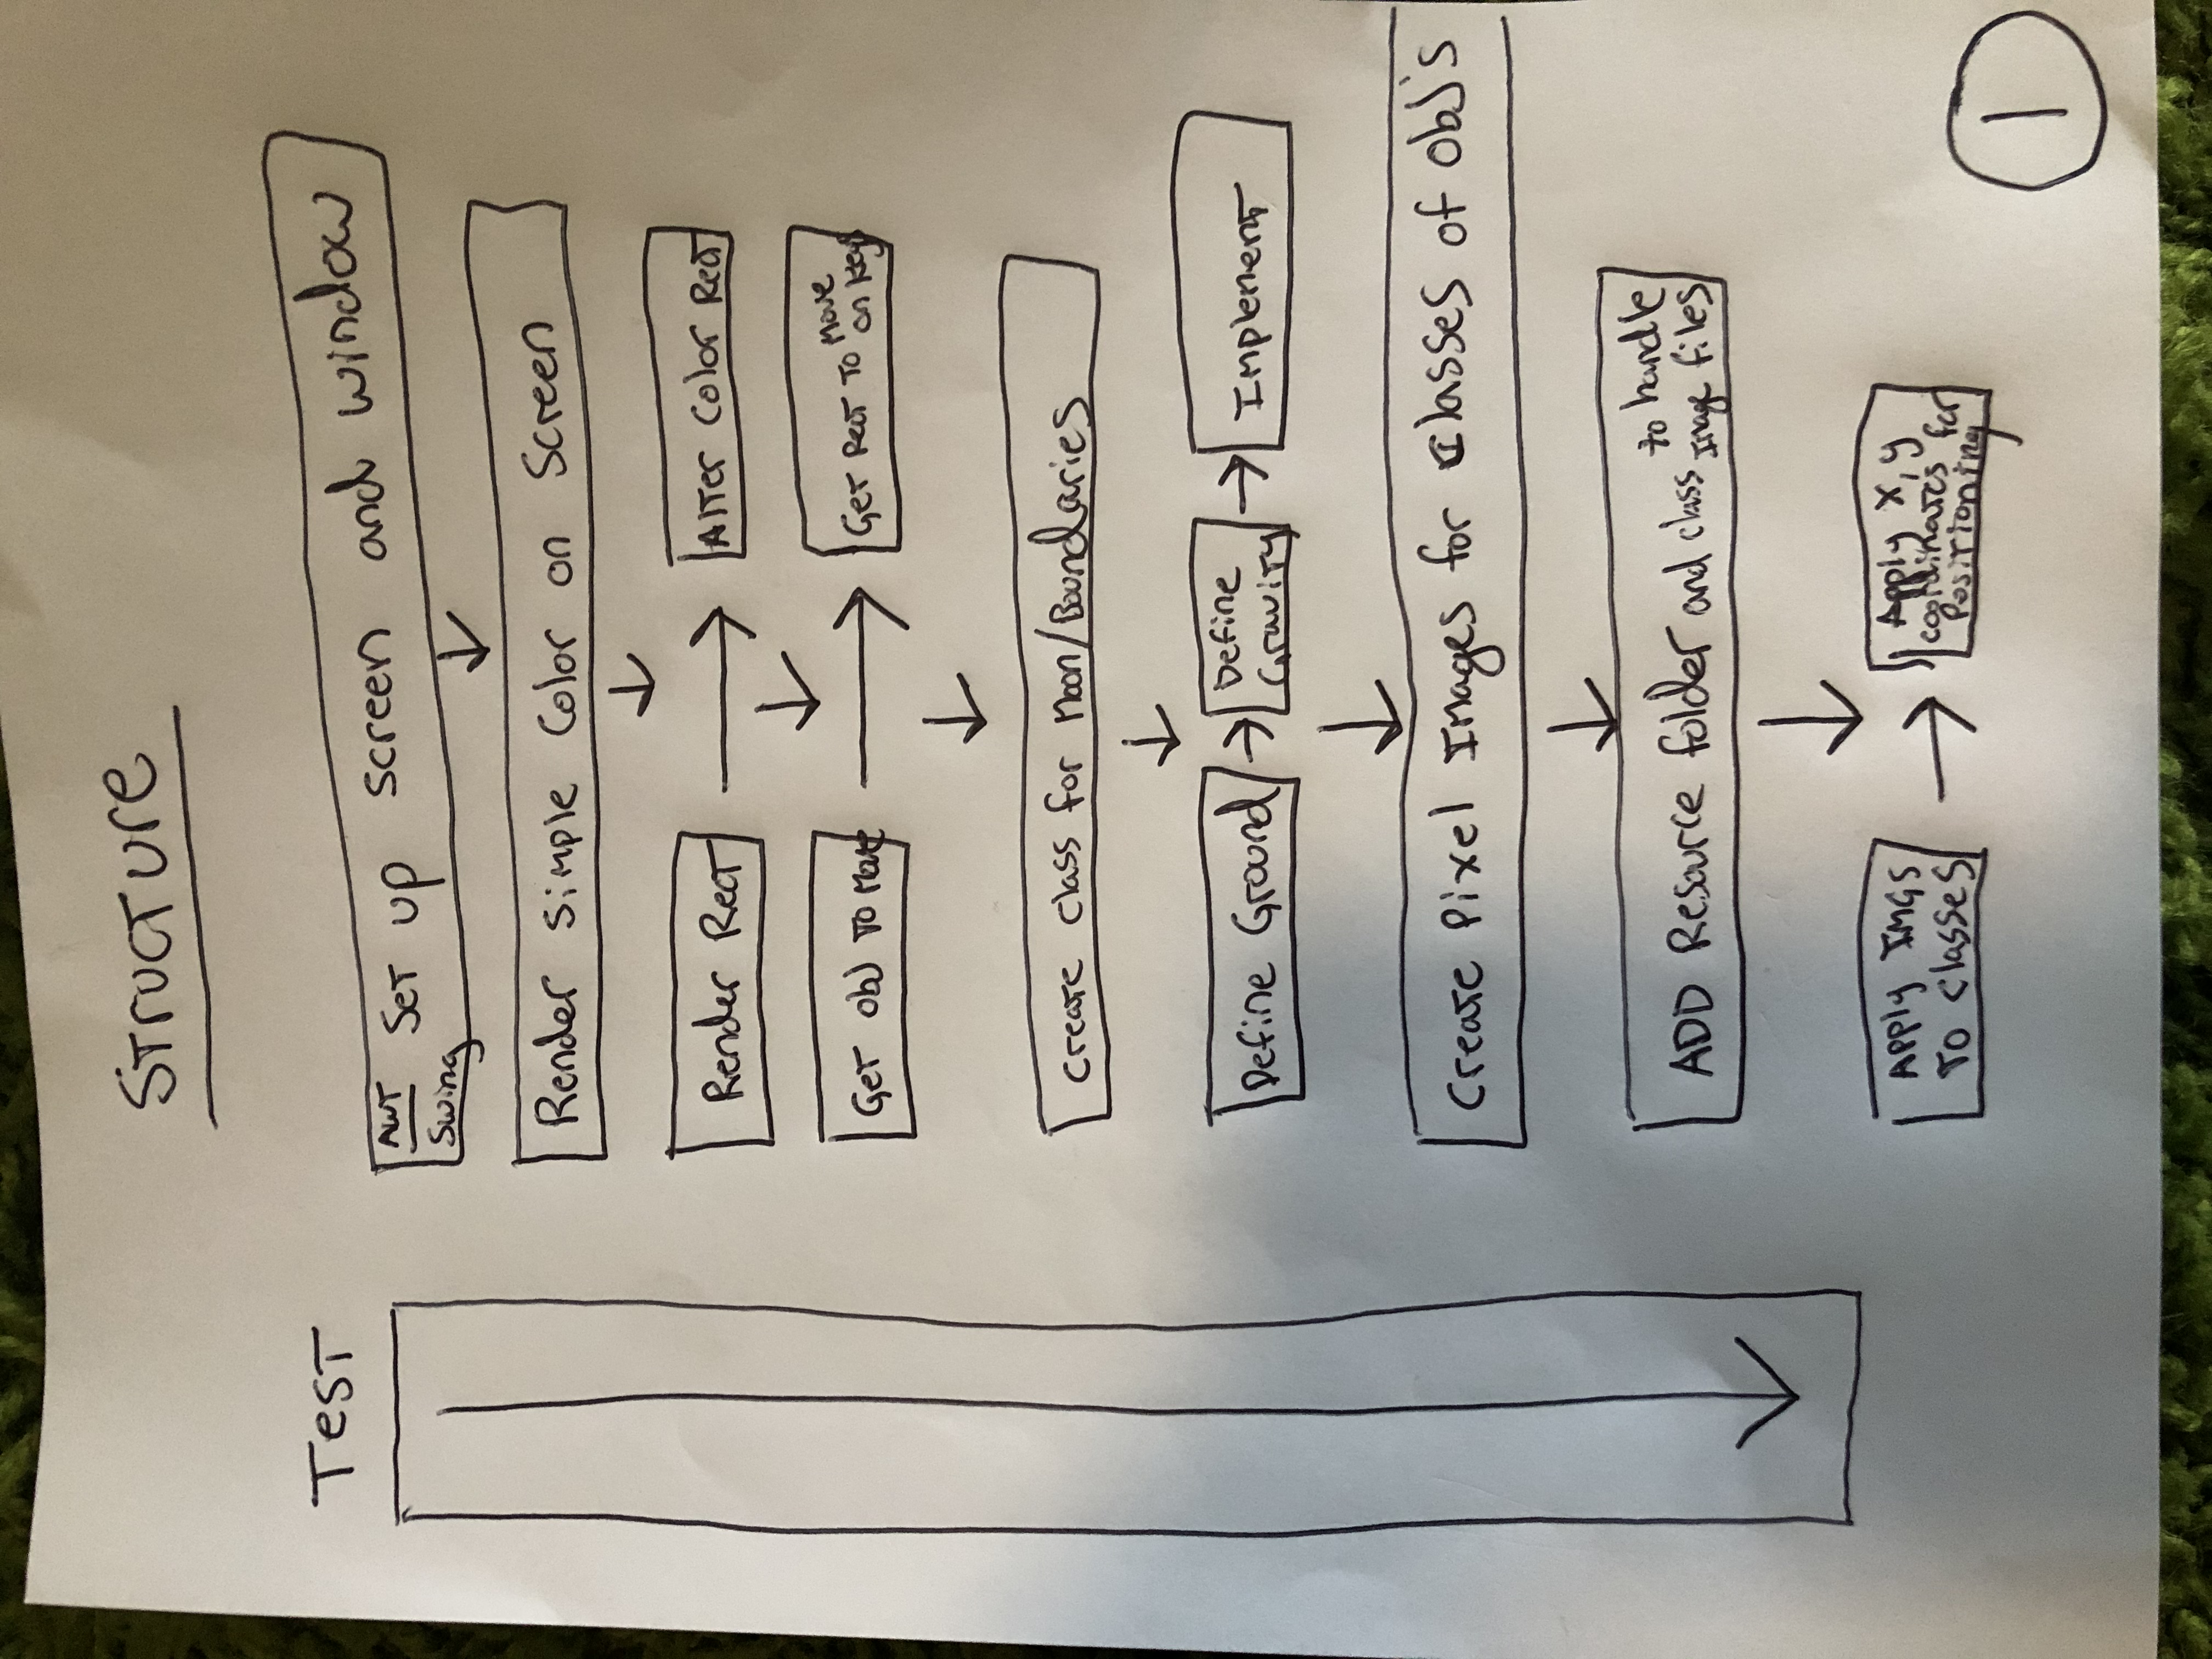 Structure
Test
AWT
Swing
Set up screen and window
Render Simple Color on Screen
Render Rect
Alter Color Rect
Get obj to Move
Get Rect to Move
on keys
Create class for Moon/Boundaries
Define Ground
Define
Gravity
Implement
Create Pixel Images for Classes of obj's
ADD Resource folder and class to handle
Image files
Apply IMGS
to classes
Apply x,y
coordinates for
Positioning
1